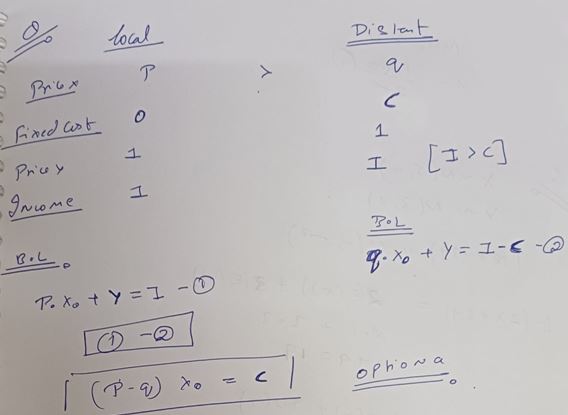 Q. Local Distant
Price x P > q
Fixed Cost 0 C
Price y 1 1
Income I I [I > C]
B.L B.L
P. x₀ + y = I - ① q. x₀ + y = I - C - ②
① - ②
(P - q) x₀ = C option a